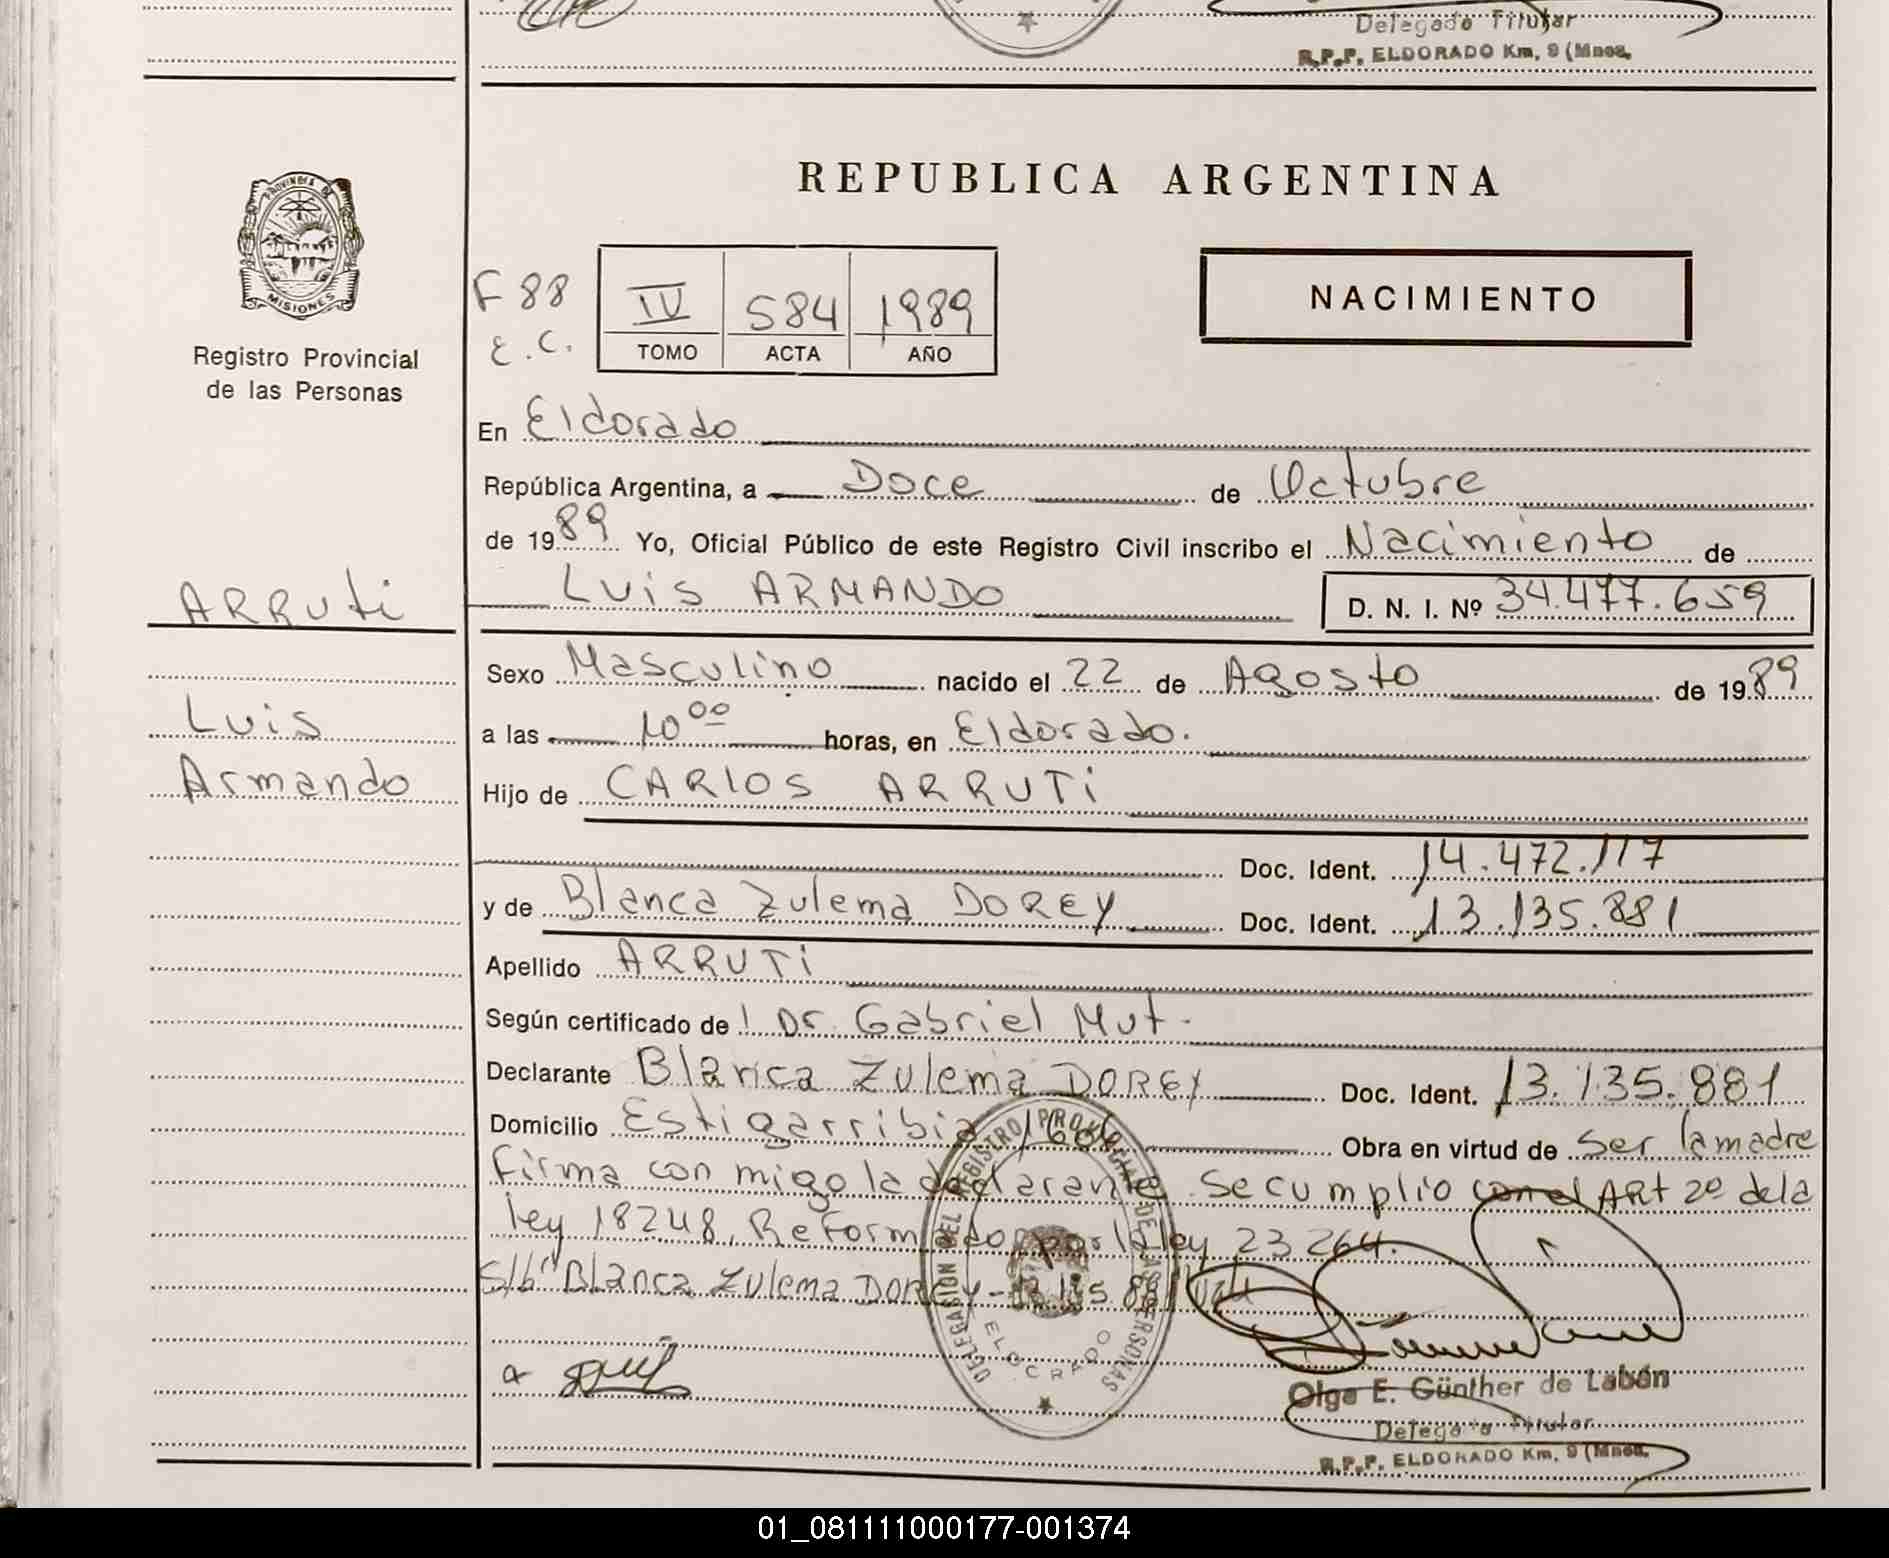 Delegado Titular
R.P.P. ELDORADO Km. 9 (Mnes.
REPUBLICA ARGENTINA
PROVINCIA DE
MISIONES
Registro Provincial
de las Personas
F 88
E.C.
IV 584 1989
TOMO ACTA AÑO
NACIMIENTO
En Eldorado
República Argentina, a Doce de Octubre
de 1989 Yo, Oficial Público de este Registro Civil inscribo el Nacimiento de
ARRUTi
LUiS ARMANDO D. N. I. Nº 34.477.659
Sexo Masculino nacido el 22 de Agosto de 1989
Luis
a las 10 00 horas, en Eldorado.
Armando
Hijo de CARLOS ARRUTi
Doc. Ident. 14.472.117
y de Blanca Zulema DOREY Doc. Ident. 13.135.881
Apellido ARRUTi
Según certificado de l Dr. Gabriel Mut.
Declarante Blanca Zulema DOREY Doc. Ident. 13.135.881
Domicilio Estigarribia Obra en virtud de ser la madre
firma con migo la declarante. Se cumplio con el ART 2º de la
ley 18248, Reformado por la ley 23264.
Blanca Zulema DOREY
DELEGASION DEL REGISTRO PROVINCIAL DE LAS PERSONAS
ELDORADO
Olga E. Günther de Labán
Delegada Titular
R.P.P. ELDORADO Km. 9 (Mnes.
01_081111000177-001374